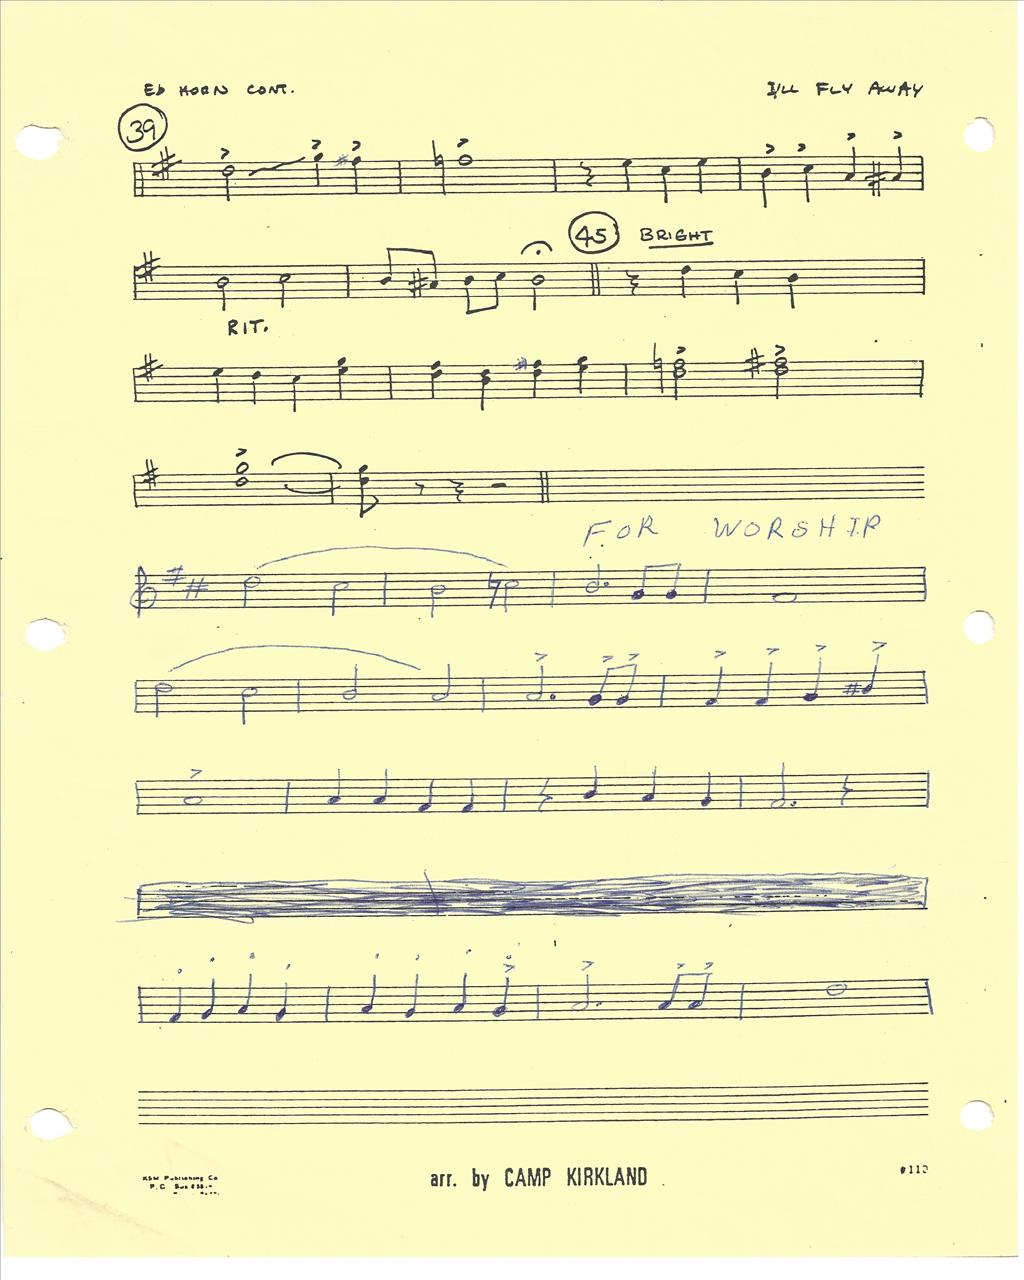 Eb HORN CONT. I'LL FLY AWAY
39
45 BRIGHT
RIT.
FOR WORSHIP
KSM Publishing Co
P.O. Box
arr. by CAMP KIRKLAND